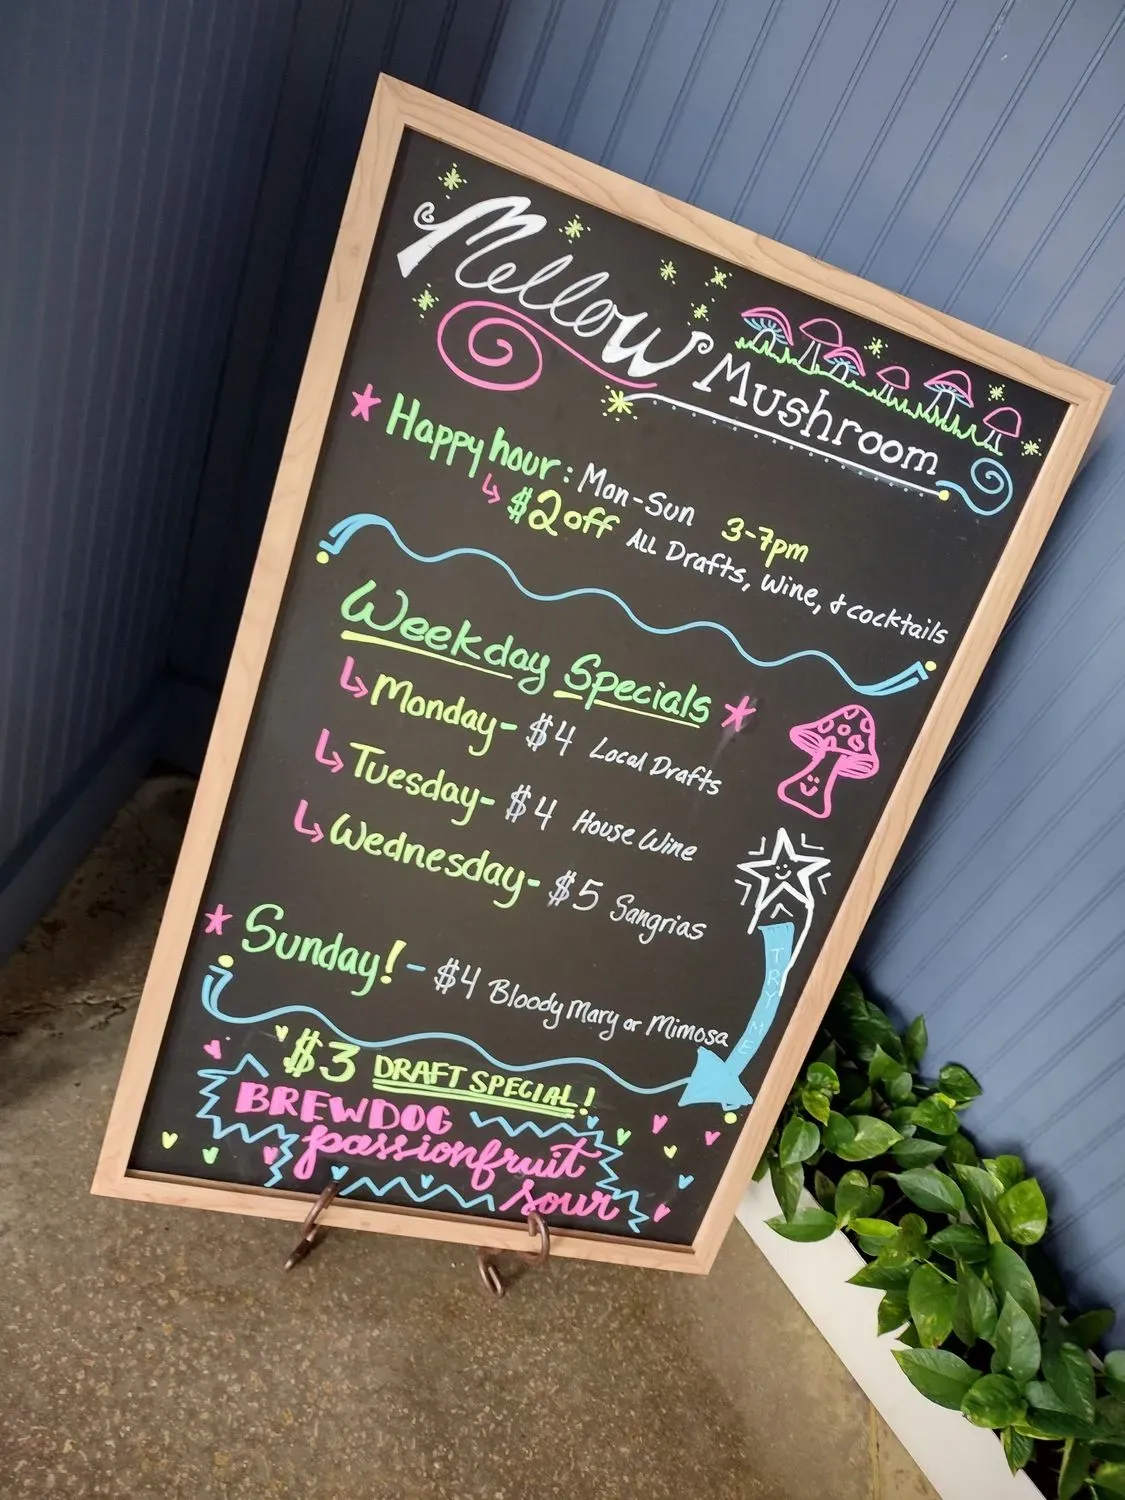 Mellow Mushroom
Happy hour: Mon-Sun 3-7pm
$2 off ALL Drafts, Wine, & cocktails
Weekday Specials
Monday- $4 Local Drafts
Tuesday- $4 House Wine
Wednesday- $5 Sangrias
Sunday! - $4 Bloody Mary or Mimosa
TRY ME
$3 DRAFT SPECIAL!
BREWDOG
passionfruit
sour